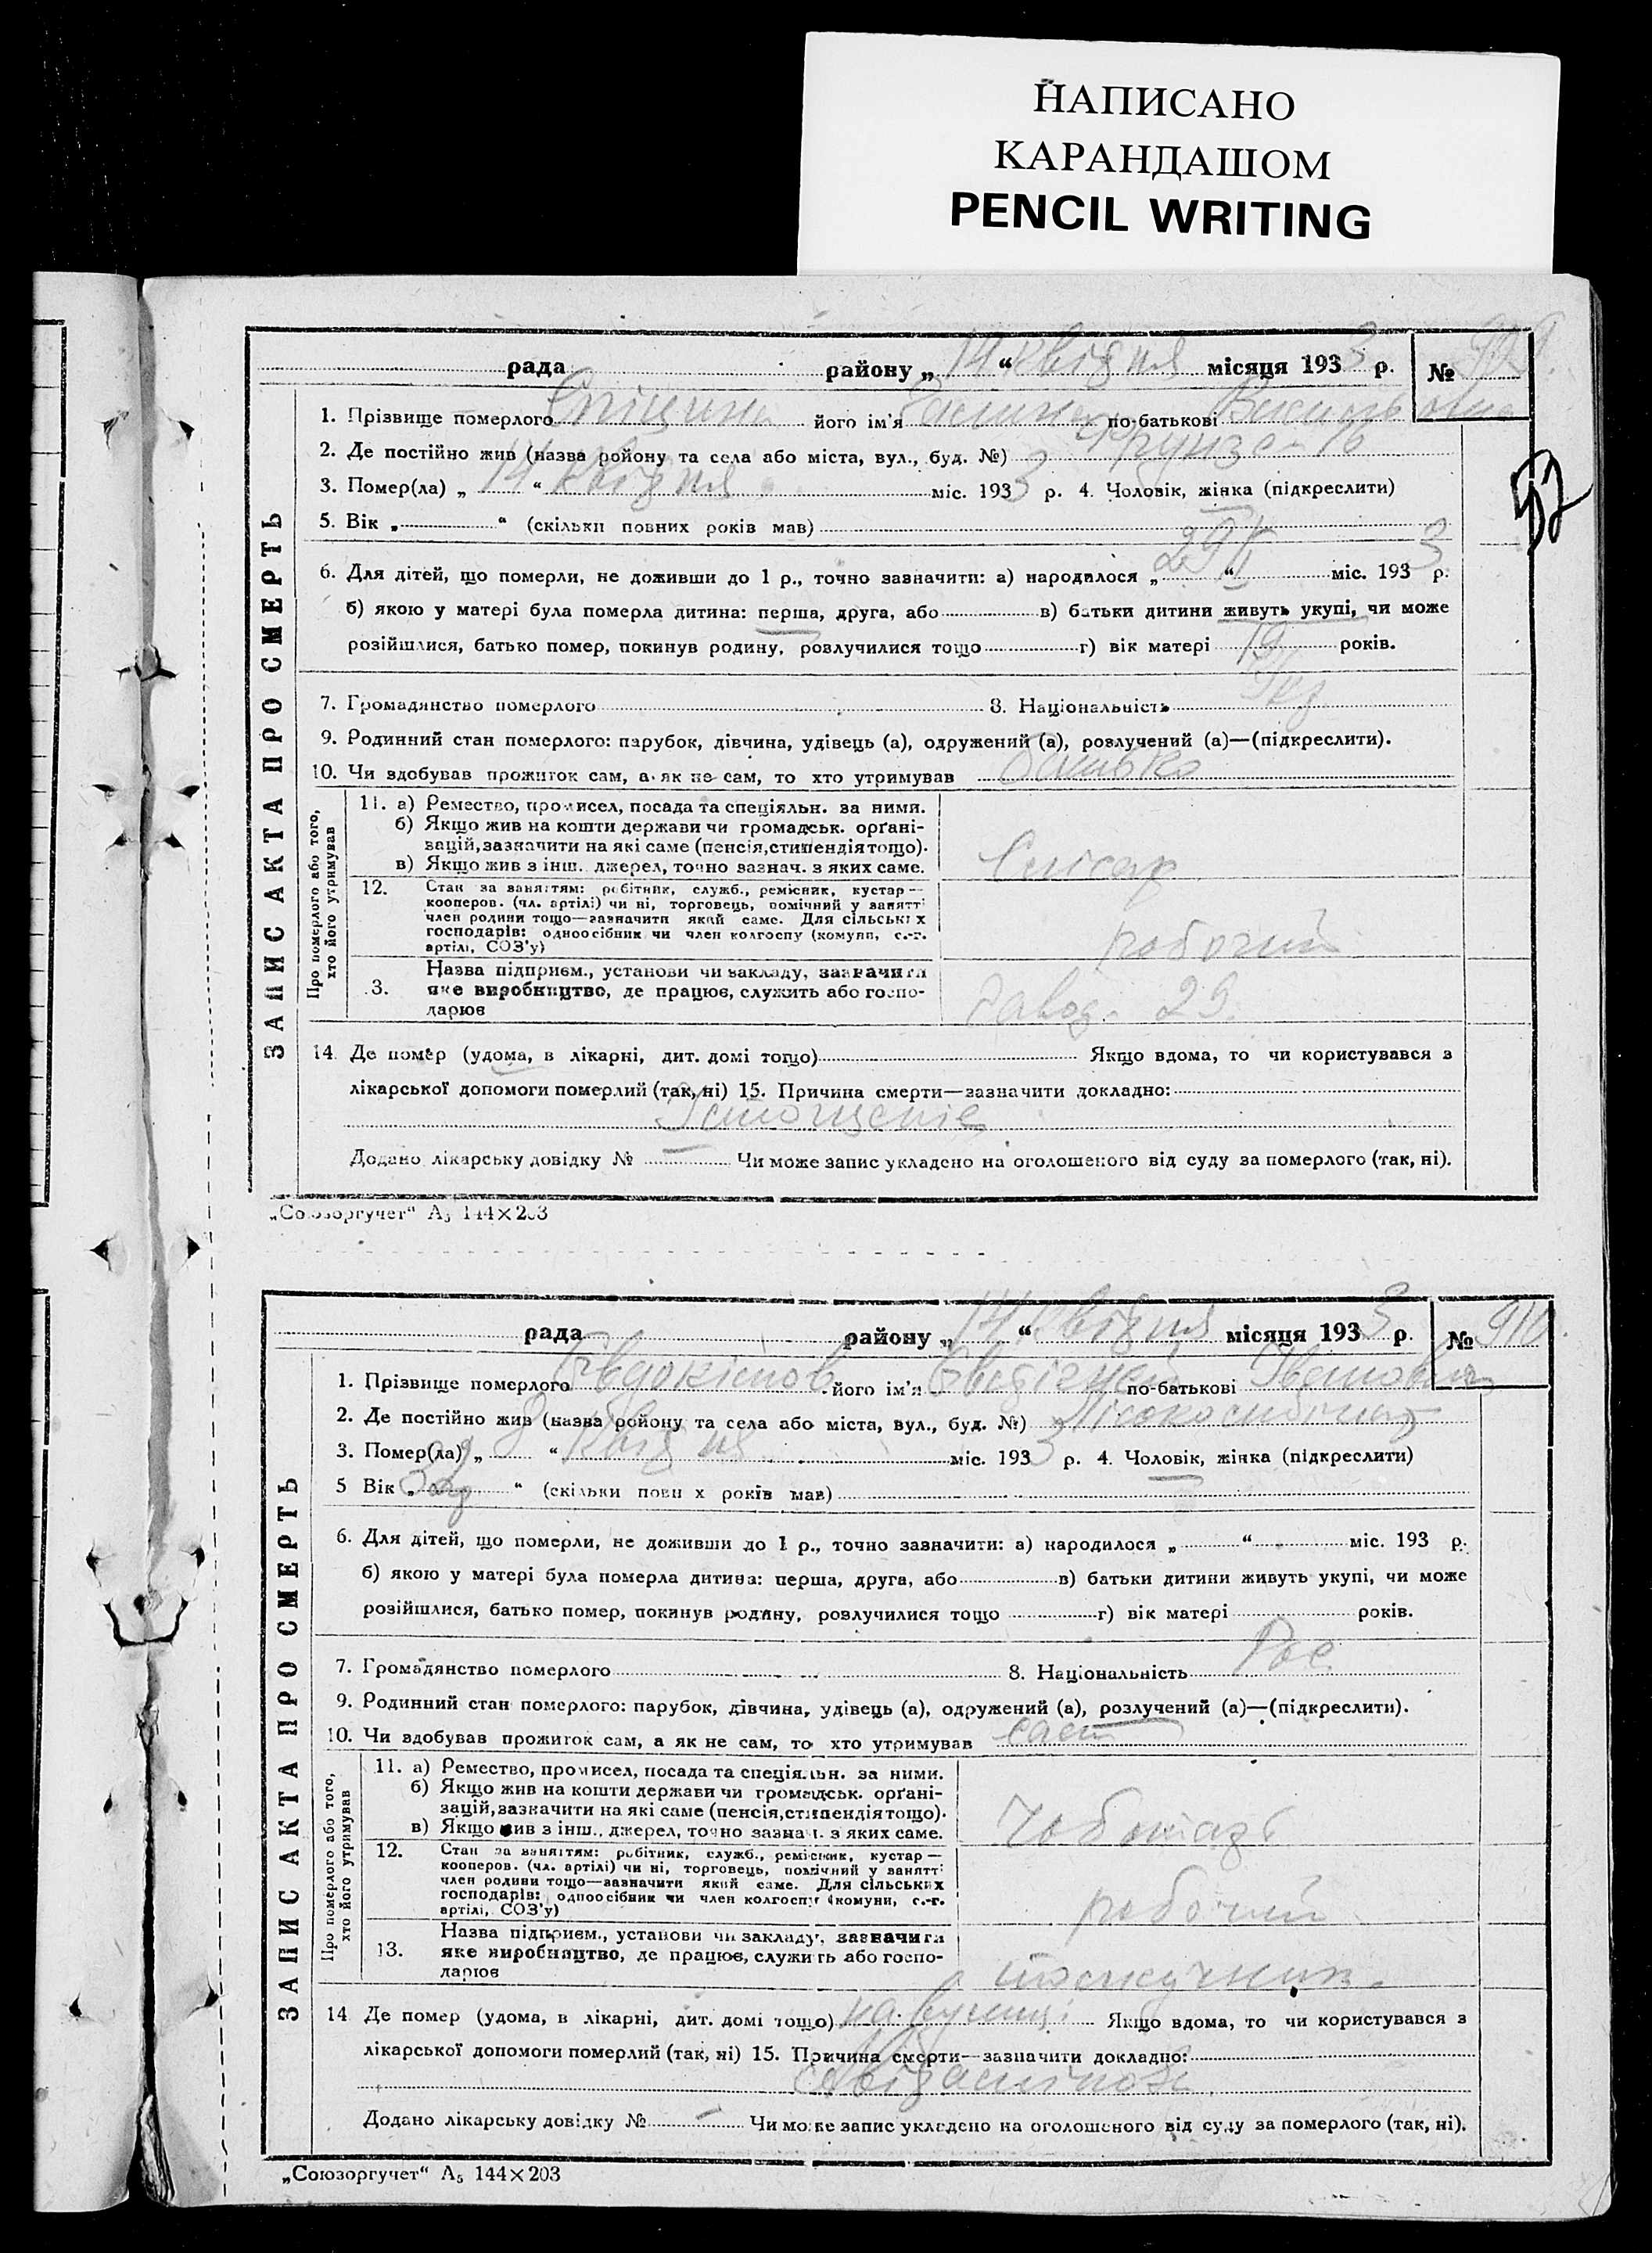 НАПИСАНО
КАРАНДАШОМ
PENCIL WRITING
52
рада району „14“ квітня місяця 1933 р. № 909.
1. Прізвище померлого Спіцина його ім'я Галина по-батькові Васильовна
2. Де постійно жив (назва району та села або міста, вул., буд. №) Фрунзе - 16
3. Помер(ла) „14“ квітня міс. 1933 р. 4. Чоловік, жінка (підкреслити)
5. Вік „ “ (скільки повних років мав)
6. Для дітей, що померли, не доживши до 1 р., точно зазначити: а) народилося „29“ міс. 1933 р.
б) якою у матері була померла дитина: перша, друга, або в) батьки дитини живуть укупі, чи може
розійшлися, батько помер, покинув родину, розлучилися тощо г) вік матері 19 років.
7. Громадянство померлого 8. Національність Укр
9. Родинний стан померлого: парубок, дівчина, удівець (а), одружений (а), розлучений (а)—(підкреслити).
10. Чи здобував прожиток сам, а як не сам, то хто утримував батько
ЗАПИС АКТА ПРО СМЕРТЬ
Про померлого або того, хто його утримував
11. а) Ремество, промисел, посада та спеціяльн. за ними.
б) Якщо жив на кошти держави чи громадськ. органі-
зацій, зазначити на які саме (пенсія, стипендія тощо).
в) Якщо жив з інш. джерел, точно зазнач. з яких саме.
Слісар
12. Стан за заняттям: робітник, служб., ремісник, кустар—
кооперов. (чл. артілі) чи ні, торговець, помічний у занятті
член родини тощо—зазначити який саме. Для сільських
господарів: одноосібник чи член колгоспу (комуни, с.-г.
артілі, СОЗ'у)
робочий
3. Назва підприєм., установи чи закладу, зазначити
яке виробництво, де працює, служить або госпо-
дарює
завод - 29.
14. Де помер (удома, в лікарні, дит. домі тощо) Якщо вдома, то чи користувався з
лікарської допомоги померлий (так, ні) 15. Причина смерти—зазначити докладно:
Істощеніє
Додано лікарську довідку № — Чи може запис укладено на оголошеного від суду за померлого (так, ні).
„Союзоргучет“ А5 144×203
рада району „14“ квітня місяця 1933 р. № 910.
1. Прізвище померлого Євдокімов його ім'я по-батькові Івановіч
2. Де постійно жив (назва району та села або міста, вул., буд. №)
3. Помер(ла) „8“ квітня міс. 1933 р. 4. Чоловік, жінка (підкреслити)
5 Вік „ “ (скільки повних років мав)
6. Для дітей, що померли, не доживши до 1 р., точно зазначити: а) народилося „ “ міс. 193 р.
б) якою у матері була померла дитина: перша, друга, або в) батьки дитини живуть укупі, чи може
розійшлися, батько помер, покинув родину, розлучилися тощо г) вік матері років.
7. Громадянство померлого 8. Національність Рос.
9. Родинний стан померлого: парубок, дівчина, удівець (а), одружений (а), розлучений (а)—(підкреслити).
10. Чи здобував прожиток сам, а як не сам, то хто утримував сам
ЗАПИС АКТА ПРО СМЕРТЬ
Про померлого або того, хто його утримував
11. а) Ремество, промисел, посада та спеціяльн. за ними.
б) Якщо жив на кошти держави чи громадськ. органі-
зацій, зазначити на які саме (пенсія, стипендія тощо).
в) Якщо жив з інш. джерел, точно зазнач. з яких саме.
Чоботарь
12. Стан за заняттям: робітник, служб., ремісник, кустар—
кооперов. (чл. артілі) чи ні, торговець, помічний у занятті
член родини тощо—зазначити який саме. Для сільських
господарів: одноосібник чи член колгоспу (комуни, с.-г.
артілі, СОЗ'у)
робочий
13. Назва підприєм., установи чи закладу, зазначити
яке виробництво, де працює, служить або госпо-
дарює
14 Де помер (удома, в лікарні, дит. домі тощо) на вулиці Якщо вдома, то чи користувався з
лікарської допомоги померлий (так, ні) 15. Причина смерти—зазначити докладно:
Додано лікарську довідку № — Чи може запис укладено на оголошеного від суду за померлого (так, ні).
„Союзоргучет“ А5 144×203